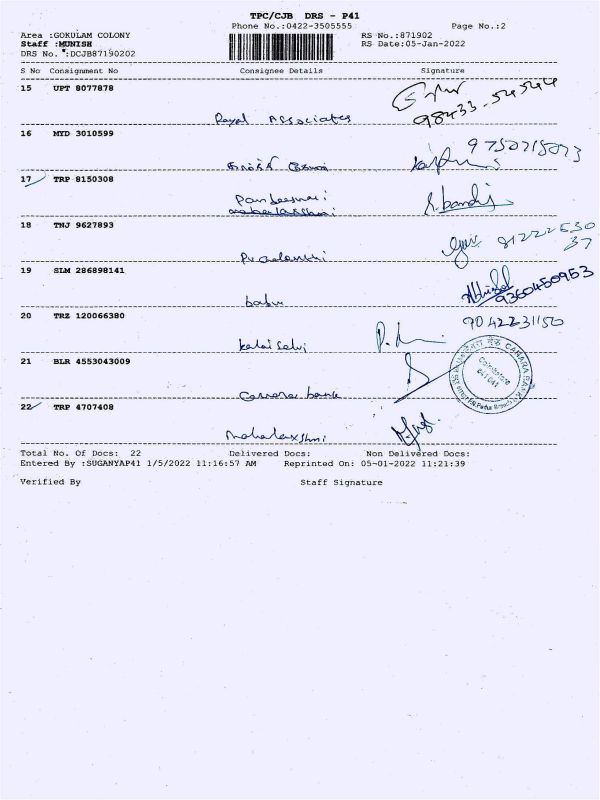 TPC/CJB DRS - P41
Phone No.:0422-3505555 Page No.:2
Area :GOKULAM COLONY RS No.:871902
Staff :MUNISH RS Date:05-Jan-2022
DRS No. :DCJB87190202
S No Consignment No Consignee Details Signature
15 UPT 8077878
Royal Associates 98433-54544
16 MYD 3010599
9750715073
17 TRP 8150308
18 TNJ 9627893
91222530
37
19 SLM 286898141
babu 9360450953
20 TRZ 120066380 9042231150
kalai selvi
21 BLR 4553043009
CANARA BANK
Coimbatore
641 041
Canara bank
22 TRP 4707408
mahalaxshmi
Total No. Of Docs: 22 Delivered Docs: Non Delivered Docs:
Entered By :SUGANYAP41 1/5/2022 11:16:57 AM Reprinted On: 05-01-2022 11:21:39
Verified By Staff Signature